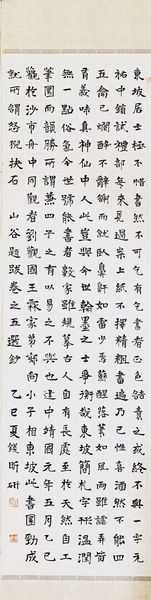 東坡居士極不惜書然不可乞有乞書者正色詰責之或終不與一字元
祐中鎖試禮部每來見過案上紙不擇精粗書遍乃已性喜酒然不能四
五龠已爛醉不辭謝而就臥鼻鼾如雷少焉蘇醒落筆如風雨雖謔弄皆
有義味真神仙中人此豈與今世翰墨之士爭衡哉東坡簡札字形溫潤
無一點俗氣今世號能書者數家雖規摹古人自有長處至於天然自工
筆圓而韻勝所謂兼四子之有以易之不與也建中靖國元年五月乙巳
觀於沙市舟中同觀者劉觀國王霖家弟叔向小子相東坡此書圓勁成
就所謂怒猊抉石 山谷題跋卷之五選鈔 乙巳夏錢昕